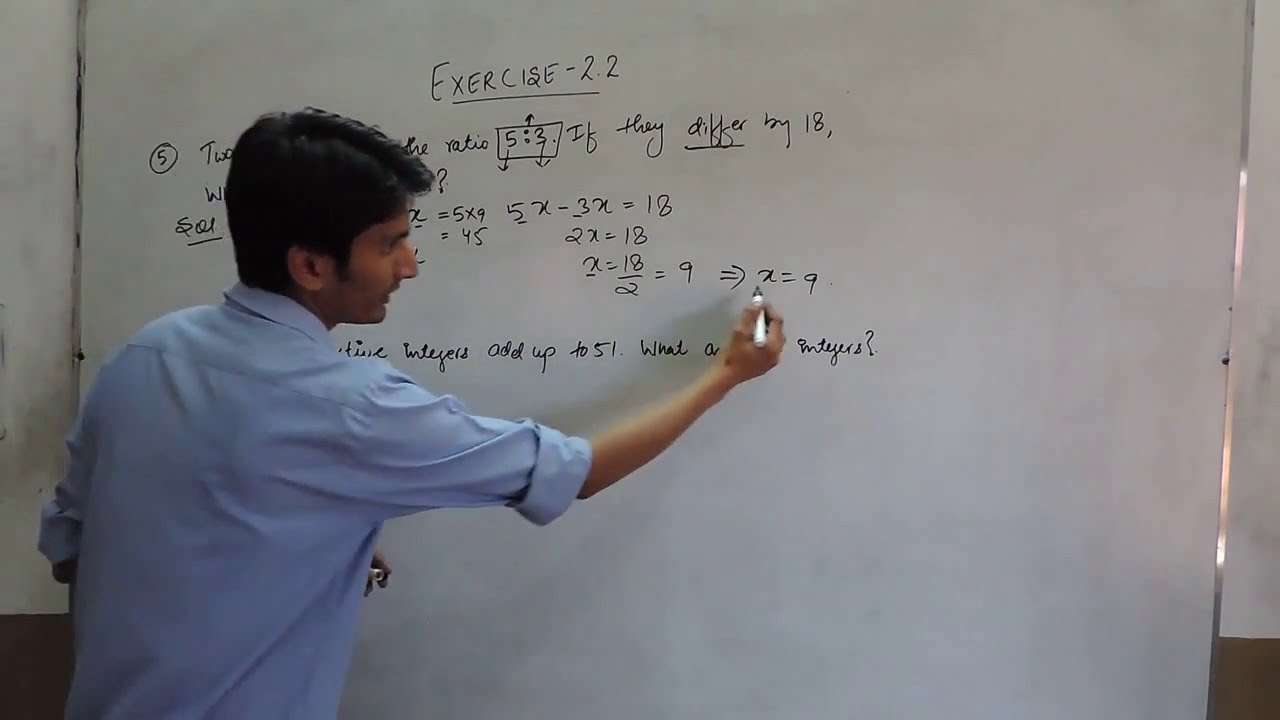 EXERCISE-2.2
⑤ Two the ratio 5:3. If they differ by 18,
?
Sol x = 5×9 5x-3x = 18
= 45 2x = 18
x = 18/2 = 9 ⇒ x = 9.
integers add up to 51. What integers?